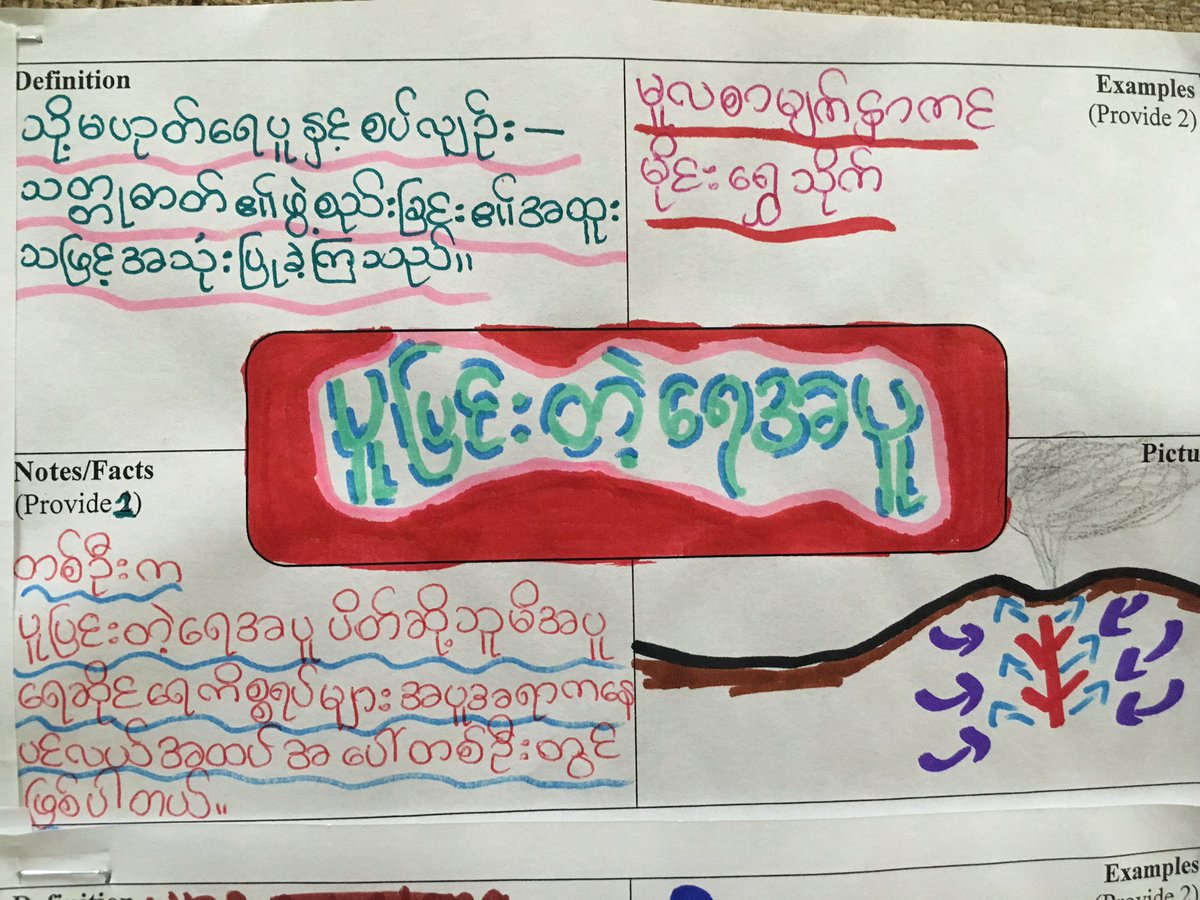 Definition
သို့မဟုတ်ရေပူနှင့်စပ်လျဉ်း—
သတ္တုဓာတ်၏ဖွဲ့စည်းခြင်း၏အထူး
သဖြင့်အသုံးပြုခဲ့ကြသည်။
Examples
(Provide 2)
မူလစာမျက်နှာကင်
မိုင်းရွှေသိုက်
ပူပြင်းတဲ့ရေအပူ
Notes/Facts
(Provide 1)
တစ်ဦးက
ပူပြင်းတဲ့ရေအပူပိတ်ဆို့ဘူမိအပူ
ရေဆိုင်ရေကိစ္စရပ်များအပူအရာကနေ
ပင်လယ်အထပ်အပေါ်တစ်ဦးတွင်
ဖြစ်ပါတယ်။
Pictu
Examples
(Provide 2)
Definition